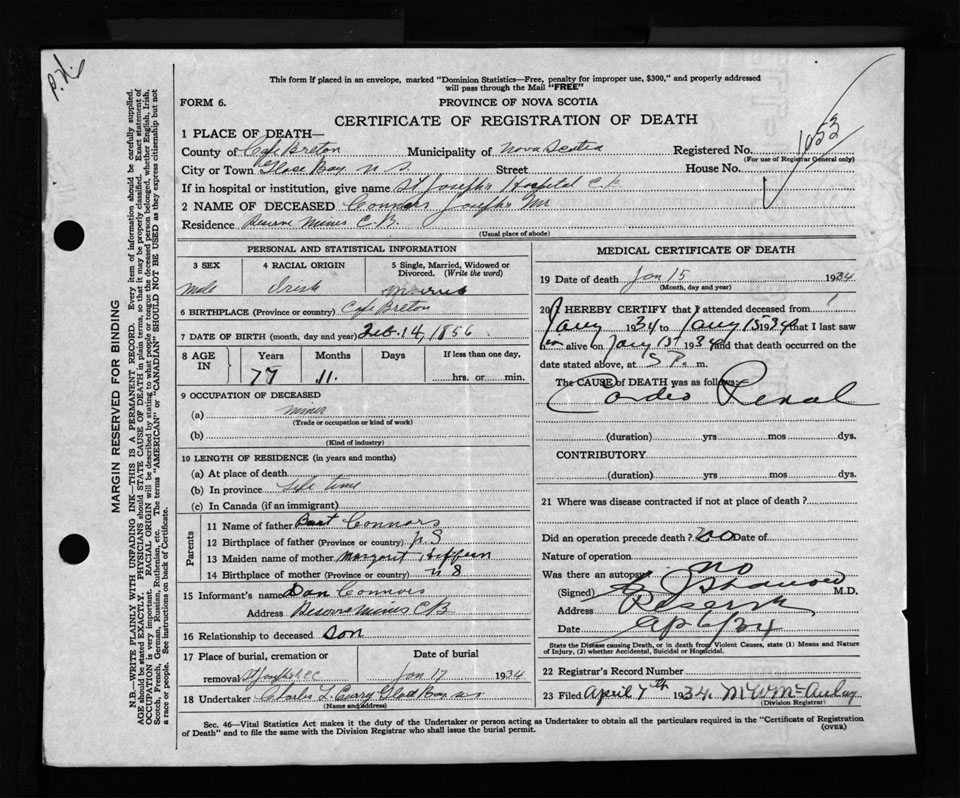 P.H.
This form if placed in an envelope, marked "Dominion Statistics—Free, penalty for improper use, $300," and properly addressed
will pass through the Mail "FREE"
FORM 6.
PROVINCE OF NOVA SCOTIA
CERTIFICATE OF REGISTRATION OF DEATH
1 PLACE OF DEATH—
County of Cape Breton Municipality of Nova Scotia Registered No.
(For use of Registrar General only)
City or Town Glace Bay N S Street House No.
If in hospital or institution, give name St Joseph's Hospital C.B.
2 NAME OF DECEASED Connors Joseph Mr
Residence Reserve Mines C.B.
(Usual place of abode)
PERSONAL AND STATISTICAL INFORMATION
3 SEX 4 RACIAL ORIGIN 5 Single, Married, Widowed or Divorced. (Write the word)
Male Irish Married
6 BIRTHPLACE (Province or country) Cape Breton
7 DATE OF BIRTH (month, day and year) Feb. 14, 1856.
8 AGE IN Years Months Days If less than one day,
77 11. hrs. or min.
9 OCCUPATION OF DECEASED
(a) miner
(Trade or occupation or kind of work)
(b)
(Kind of industry)
10 LENGTH OF RESIDENCE (in years and months)
(a) At place of death
(b) In province Life time
(c) In Canada (if an immigrant)
Parents
11 Name of father Bart Connors
12 Birthplace of father (Province or country) N.S
13 Maiden name of mother Margaret
14 Birthplace of mother (Province or country) N S
15 Informant's name Dan Connors
Address Reserve Mines C/B
16 Relationship to deceased Son
17 Place of burial, cremation or removal Date of burial
Jan 17 1934
18 Undertaker Charles L. Curry Glace Bay NS
(Name and address)
MEDICAL CERTIFICATE OF DEATH
19 Date of death Jan 15 1934
(Month, day and year)
20 I HEREBY CERTIFY that I attended deceased from
1934 to 1934 that I last saw
him alive on 1934 and that death occurred on the
date stated above, at 5 P. m.
The CAUSE of DEATH was as follows:
Cardio Renal
(duration) yrs mos dys.
CONTRIBUTORY
(duration) yrs mos dys.
21 Where was disease contracted if not at place of death?
Did an operation precede death? No Date of
Nature of operation
Was there an autopsy no
(Signed) M.D.
Address Reserve
Date Ap 6/34
State the Disease causing Death, or in death from Violent Causes, state (1) Means and Nature
of Injury, (2) whether Accidental, Suicidal or Homicidal.
22 Registrar's Record Number
23 Filed April 7th 1934. M W McAulay
(Division Registrar)
Sec. 46—Vital Statistics Act makes it the duty of the Undertaker or person acting as Undertaker to obtain all the particulars required in the "Certificate of Registration
of Death" and to file the same with the Division Registrar who shall issue the burial permit.
(OVER)
MARGIN RESERVED FOR BINDING
N.B.—WRITE PLAINLY WITH UNFADING INK—THIS IS A PERMANENT RECORD. Every item of information should be carefully supplied.
AGE should be stated EXACTLY. PHYSICIANS should STATE CAUSE OF DEATH in plain terms, so that it may be properly classified. Exact statement of
OCCUPATION is very important. RACIAL ORIGIN will be described by stating to what people or tongue the deceased person belonged, whether English, Irish,
Scotch, French, German, Russian, Ruthenian, etc. The terms "AMERICAN" or "CANADIAN" SHOULD NOT BE USED as they express citizenship but not
a race of people. See instructions on back of Certificate.